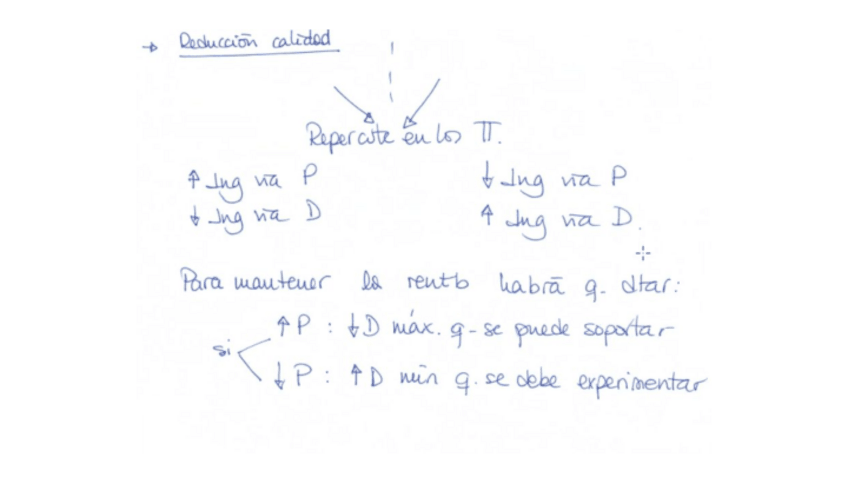 → Reducción calidad
Repercute en los Π.
↑ Ing vía P ↓ Ing vía P
↓ Ing vía D ↑ Ing vía D.
Para mantener la rentb habrá q. dtar:
si
↑ P : ↓ D máx. q- se puede soportar
↓ P : ↑ D mín q. se debe experimentar